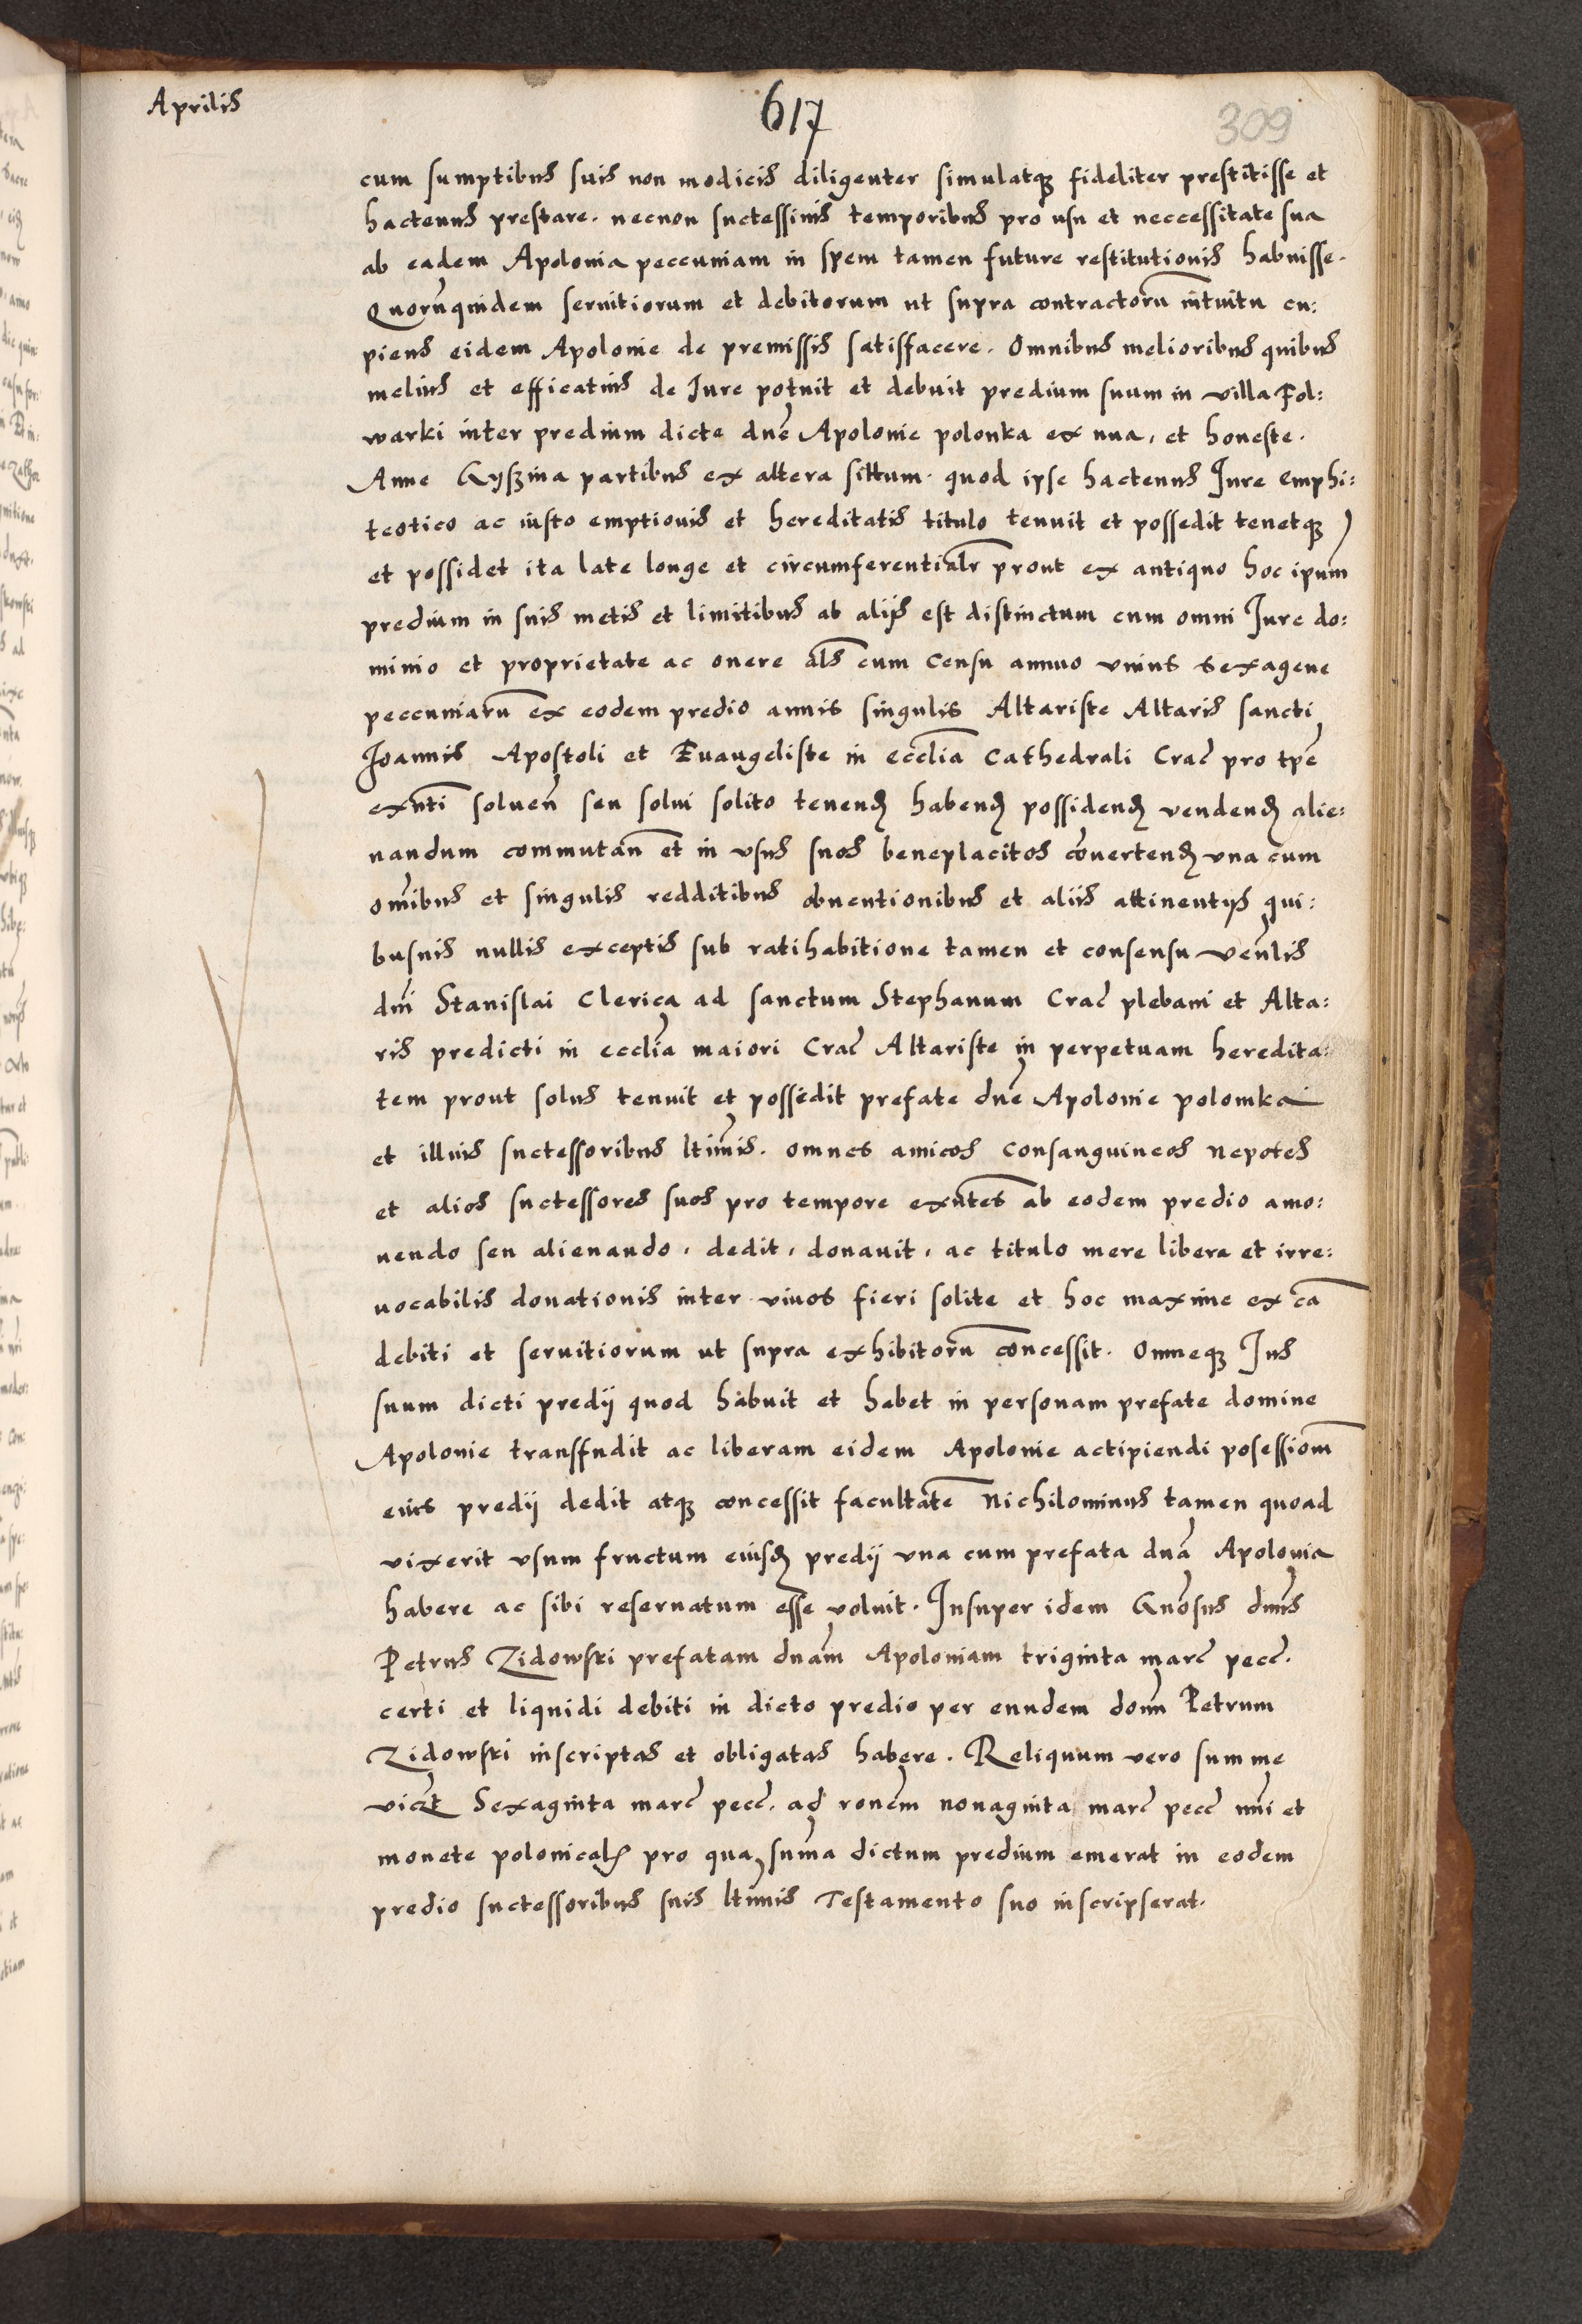 Aprilis
617
309
cum sumptibus suis non modicis diligenter simulatqꝫ fideliter prestitisse et
hactenus prestare. necnon suctessiuis temporibus pro usu et neccessitate sua
ab eadem Apolonia peccuniam in spem tamen future restitutionis habuisse.
Quorūquidem seruitiorum et debitorum ut supra contractorū intuitu cu:
piens eidem Apolonie de premissis satisfacere. Omnibus melioribus quibus
melius et efficatius de Iure potuit et debuit predium suum in villa Fol:
warki inter predium dicte dnē Apolonie polonka ex una, et honeste.
Anne Gyszina partibus ex altera situm. quod ipse hactenus Iure emphi:
teotico ac iusto emptionis et hereditatis titulo tenuit et possedit tenetqꝫ
et possidet ita late longe et circumferentialr̄ prout ex antiquo hoc ipum̄
predium in suis metis et limitibus ab aliis est distinctum cum omni Iure do:
minio et proprietate ac onere als̄ cum censu annuo vnius sexagene
peccuniarū ex eodem predio annis singulis Altariste Altaris sancti
Joannis Apostoli et Euangeliste in eccl̄ia Cathedrali Crac̄ pro tpē
exn̄ti soluen̄ seu solui solito tenendꝫ habendꝫ possidendꝫ vendendꝫ alie:
nandum commutan̄ et in vsus suos beneplacitos cōuertendꝫ vna cum
om̄ibus et singulis redditibus obuentionibus et aliis attinentijs qui:
busuis nullis exceptis sub ratihabitione tamen et consensu ven̄lis
dn̄i Stanislai Clerica ad sanctum Stephanum Crac̄ plebani et Alta:
ris predicti in eccl̄ia maiori Crac̄ Altariste in perpetuam heredita:
tem prout solus tenuit et possedit prefate dnē Apolonie polomka
et illius suctessoribus ltim̄is. omnes amicos consanguineos nepotes
et alios suctessores suos pro tempore exn̄tes ab eodem predio amo:
uendo seu alienando, dedit, donauit, ac titulo mere libera et irre:
uocabilis donationis inter viuos fieri solite et hoc maxime ex cā
debiti et seruitiorum ut supra exhibitorū concessit. Omneqꝫ Ius
suum dicti predij quod habuit et habet in personam prefate domine
Apolonie transfudit ac liberam eidem Apolonie actipiendi posessiom̄
eius predij dedit atqꝫ concessit facultatē Nichilominus tamen quoad
vixerit vsum fructum eiusdꝫ predij vna cum prefata dnā Apolonia
habere ac sibi reseruatum esse voluit. Insuper idem Gnōsus dn̄us
Petrus Zidowski prefatam dnām Apoloniam triginta marc̄ pecc̄.
certi et liquidi debiti in dicto predio per eundem dom̄ Petrum
Zidowski inscriptas et obligatas habere. Reliquum vero summe
viczt Sexaginta marc̄ pecc̄. ad ronēm nonaginta marc̄ pecc̄ nūi et
monete polonicalꝭ pro qua suma dictum predium emerat in eodem
predio suctessoribus suis ltim̄is Testamento suo inscripserat.